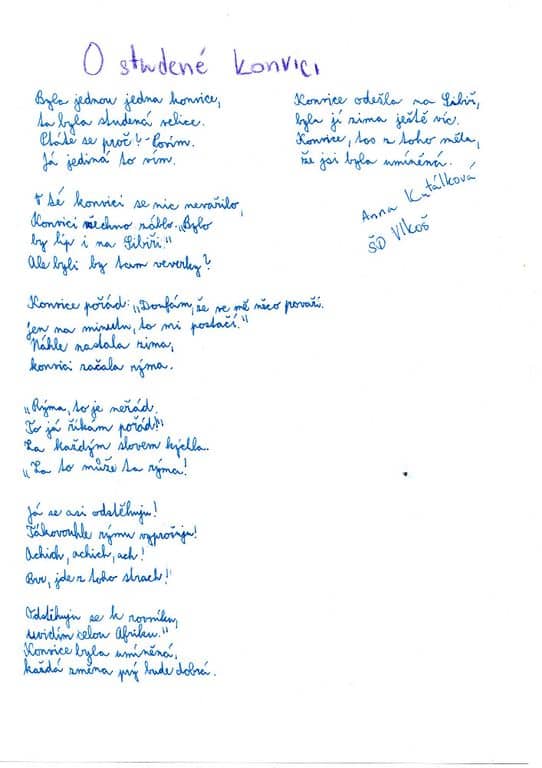 O studené konvici
Byla jednou jedna konvice,
ta byla studená velice.
Ptáte se proč? - Povím.
Já jediná to vím.
V té konvici se nic nevařilo,
Konvici všechno záblo. „Bylo
by líp i na Sibiři."
Ale byli by tam veverky?
Konvice pořád: „Doufám, že ve mě něco povaří.
jen na minutu, to mi postačí."
Náhle nastala zima,
konvici začala rýma.
„Rýma, to je neřád.
To já říkám pořád!"
Za každým slovem kýchla.
„Za to může ta rýma!
Já se asi odstěhuju!
Takovouhle rýmu vyprošuju!
Achich, achich, ach!
Brr, jde z toho strach!"
Odstěhuju se k rovníku,
uvidím celou Afriku."
Konvice byla umíněná,
každá změna prý bude dobrá.
Konvice odešla na Sibiř,
byla jí zima ještě víc.
Konvice, tos z toho měla,
že jsi byla umíněná.
Anna Kutálková
ŠD Vlkoš